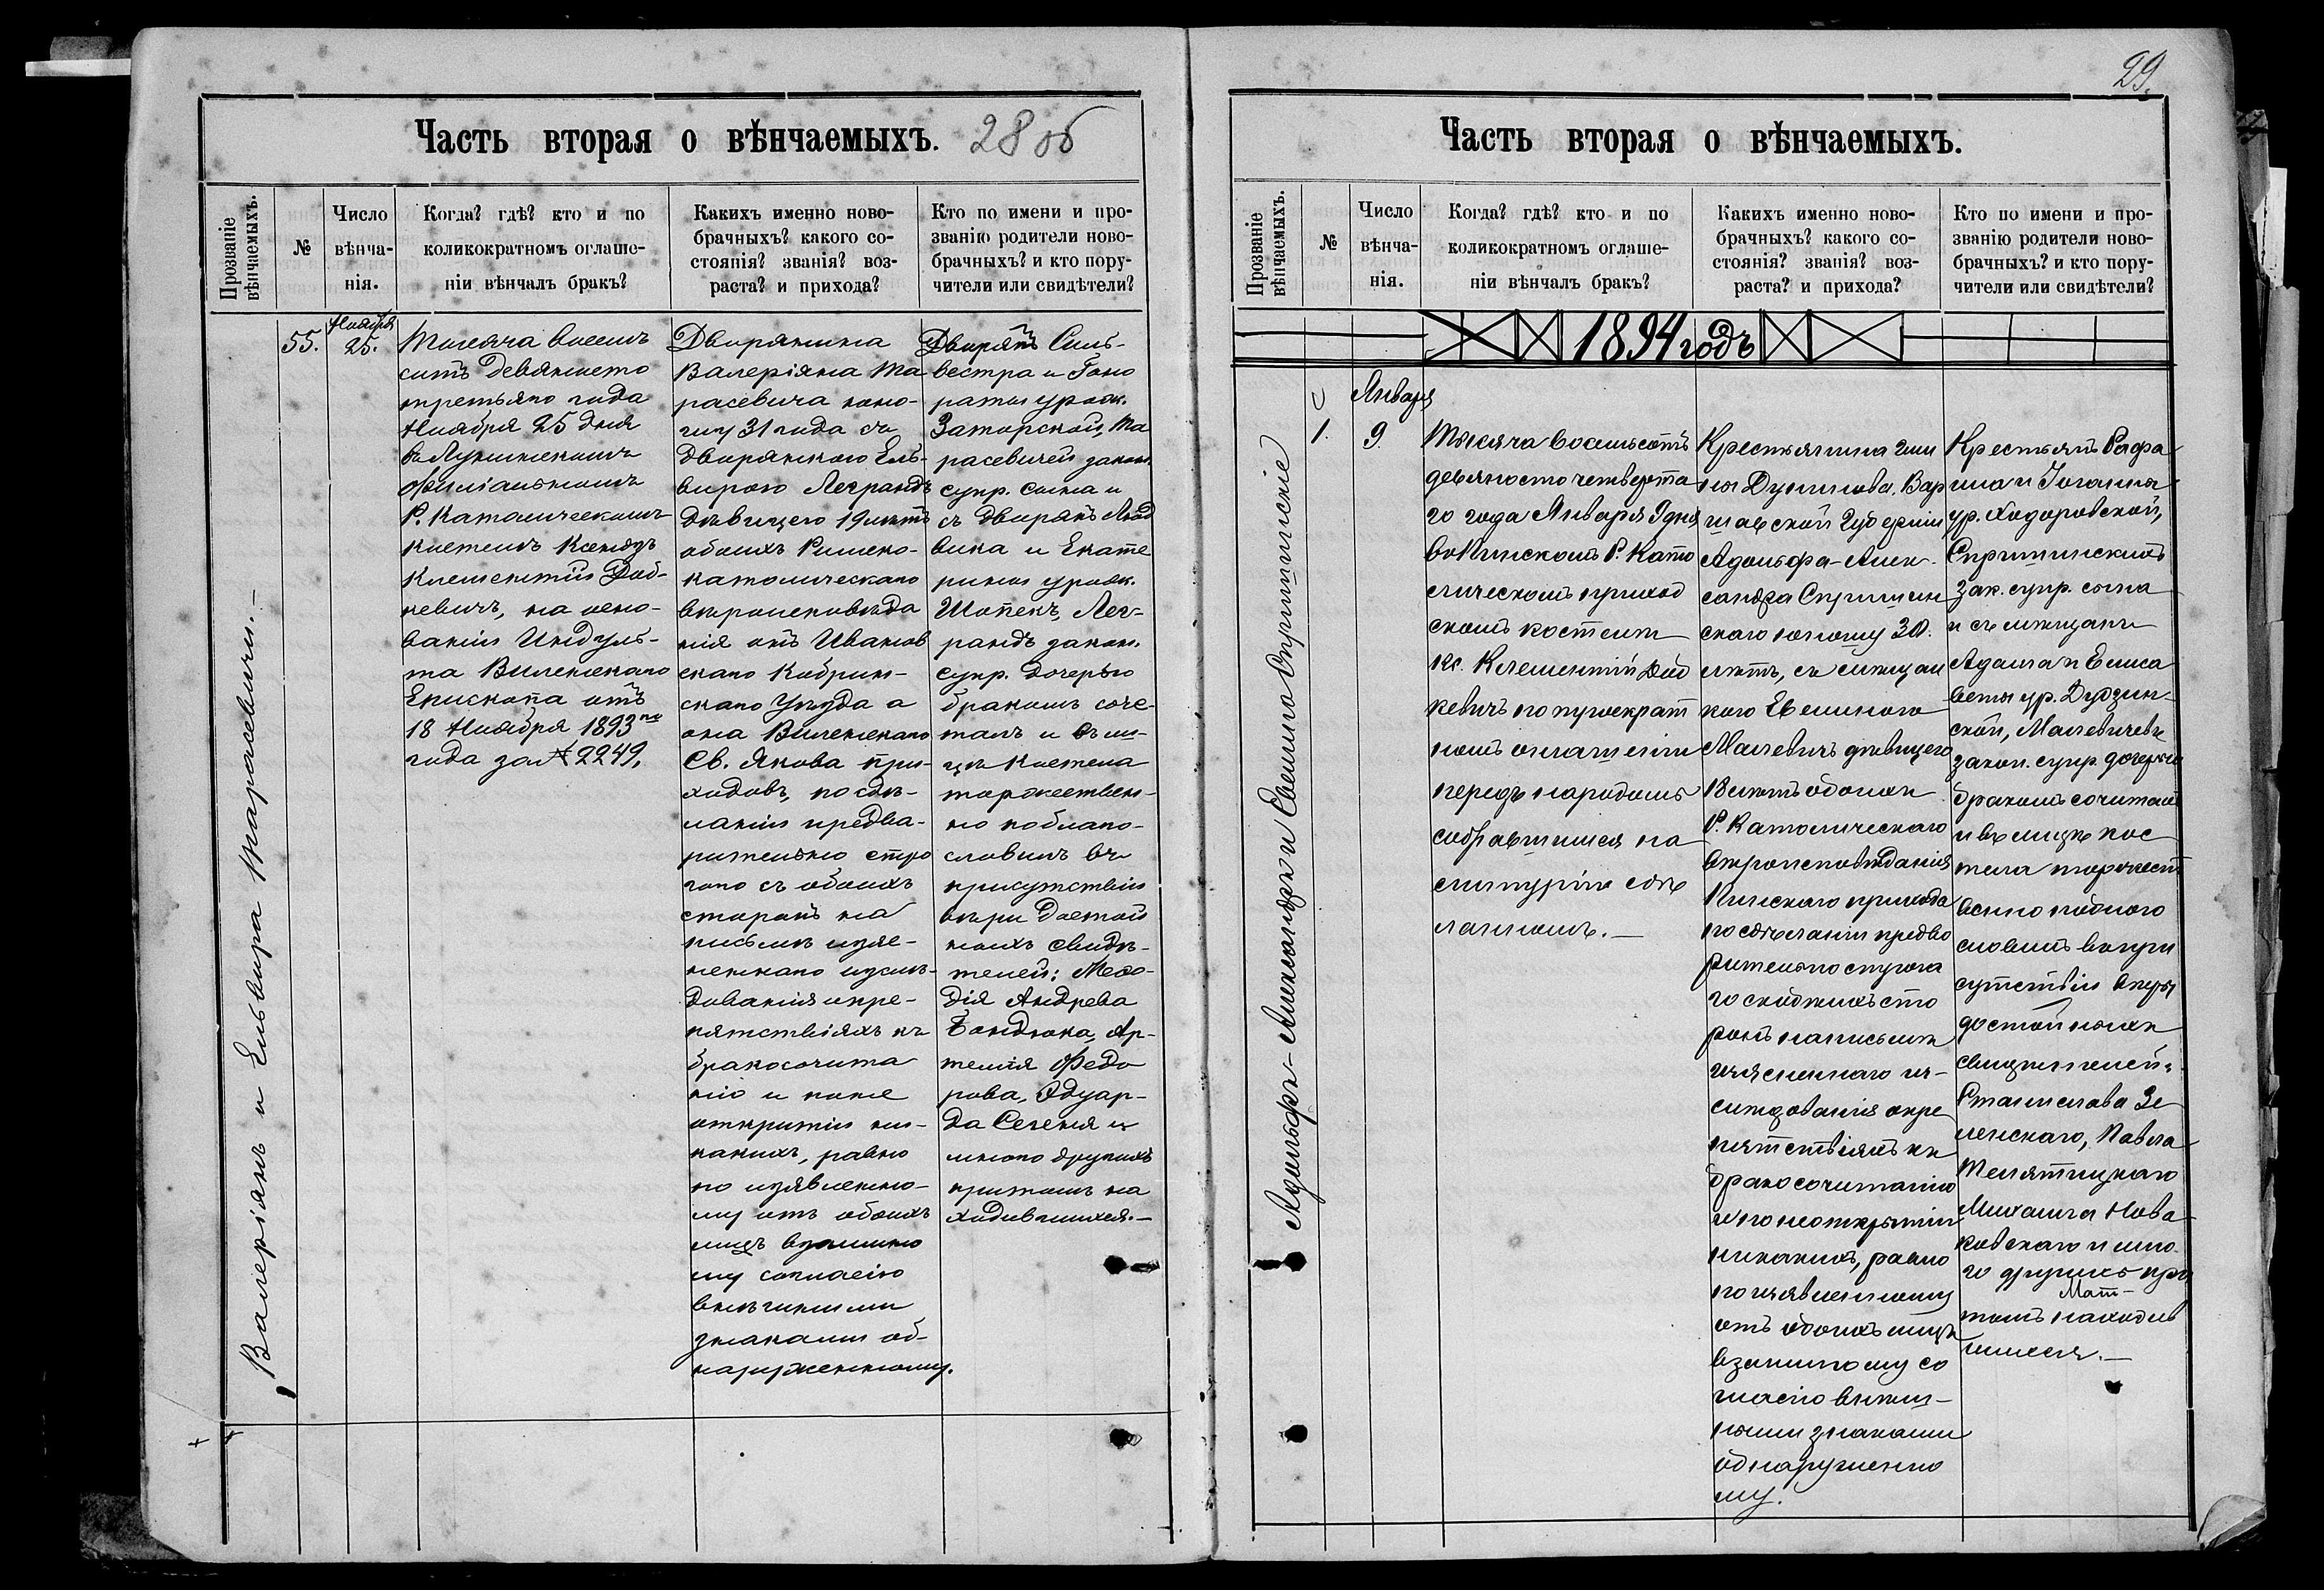 Часть вторая о вѣнчаемыхъ. 28 об
Прозваніе
вѣнчаемыхъ.
№
Число
вѣнча-
нія.
Когда? гдѣ? кто и по
коликократномъ оглаше-
ніи вѣнчалъ бракъ?
Какихъ именно ново-
брачныхъ? какого со-
стоянія? званія? воз-
раста? и прихода?
Кто по имени и про-
званію родители ново-
брачныхъ? и кто пору-
чители или свидѣтели?
Валеріянъ и Ельвира Тарасевичи.—
55.
Ноября
25.
Тысяча восемь
сотъ девяносто
третьяго года
Ноября 25 дня
въ
Филіальномъ
Р. Католическомъ
костелѣ Ксендзъ
Клементій
кевичъ, на осно-
ваніи Индуль-
та Виленскаго
Епископа отъ
18 Ноября 1893го
года за № 2249.
Дворянина
Валеріяна Та
расевича юно-
шу 31 года съ
дворянкою Ель-
вирою Леграндъ
дѣвицею 19 лѣтъ
обоихъ Римско-
католическаго
вѣроисповѣда
нія онъ Иванов
скаго Кобрин-
скаго Уѣзда а
она Виленскаго
Св. Якова при-
ходовъ, по сдѣ-
ланіи предва-
рительно стро
гаго съ обоихъ
сторонъ на
письмѣ изъяс-
неннаго изслѣ-
дованія о пре-
пятствіяхъ къ
бракосочета
нію и по не
открытіи ни-
какихъ, равно
по изявленно-
му отъ обоихъ
лицъ взаимно
му согласію
внѣшними
знаками об-
наруженному.
Дворянъ Силь-
вестра и Гоно
раты урож.
Заторской, Та
расевичей закон.
супр. сына и
съ Дворянъ Люд
вика и Екате
рины урож.
Шопекъ, Лег-
рандъ закон.
супр. дочерью
бракомъ соче-
талъ и въ ли-
цѣ костела
торжествен-
но поблаго-
словилъ въ
присутствіи
вѣри достой
ныхъ свидѣ-
телей: Меѳо-
дія Андрева
Бондюка, Ар-
темія Федо
рова, Эдуар-
да Сегеня и
много другихъ
притомъ на
ходившихся.—
29.
Часть вторая о вѣнчаемыхъ.
Прозваніе
вѣнчаемыхъ.
№
Число
вѣнча-
нія.
Когда? гдѣ? кто и по
коликократномъ оглаше-
ніи вѣнчалъ бракъ?
Какихъ именно ново-
брачныхъ? какого со-
стоянія? званія? воз-
раста? и прихода?
Кто по имени и про-
званію родители ново-
брачныхъ? и кто пору-
чители или свидѣтели?
1894 годъ
Адольфъ-Александръ и Евелина
1.
Января
9
Тысяча восемьсотъ
девяносто четверта
го года Января 9 дня
въ Пинскомъ Р. Като
лическомъ приход
скомъ костелѣ
Кс. Клементій
кевичъ по троекрат
номъ оглашеніи
передъ народомъ
собравшимся на
литургію сдѣ
ланномъ.—
Крестьянина гми
ны Дунинова, Вар
шавской Губерніи
Адольфа-Алек-
сандра
скаго юношу 30.
лѣтъ, съ мѣщан
кою Евелиною
Малевичъ дѣвицею
18 лѣтъ обоихъ
Р. Католическаго
вѣроисповѣданія
Пинскаго прихода
по сдѣланіи предва
рительно строга
го съ обоихъ сто
ронъ на письмѣ
изясненнаго из-
слѣдованія о пре
пятствіяхъ къ
бракосочитанію
и по неоткрытіи
никакихъ, равно
по изявленному
отъ обоихъ лицъ
взаимному со
гласію внѣш-
ними знаками
обнаруженно
му.
Крестьянъ Рафа
ила и Іоганны
ур. Ходоровской,
зак. супр. сына
и съ мѣщанъ
Адама и Елиса
веты ур. Дудзин-
ской, Малевичевъ
закон. супр. дочерью
бракомъ сочиталъ
и въ лицѣ кос
тела торжест
венно поблаго
словилъ въ при
сутствіи вѣры
достойныхъ
свидѣтелей:
Станислава Зе
ленскаго, Павла
Телятицкаго
Михаила Нова
ковскаго и мно
го другихъ при
томъ находив
шихся.—